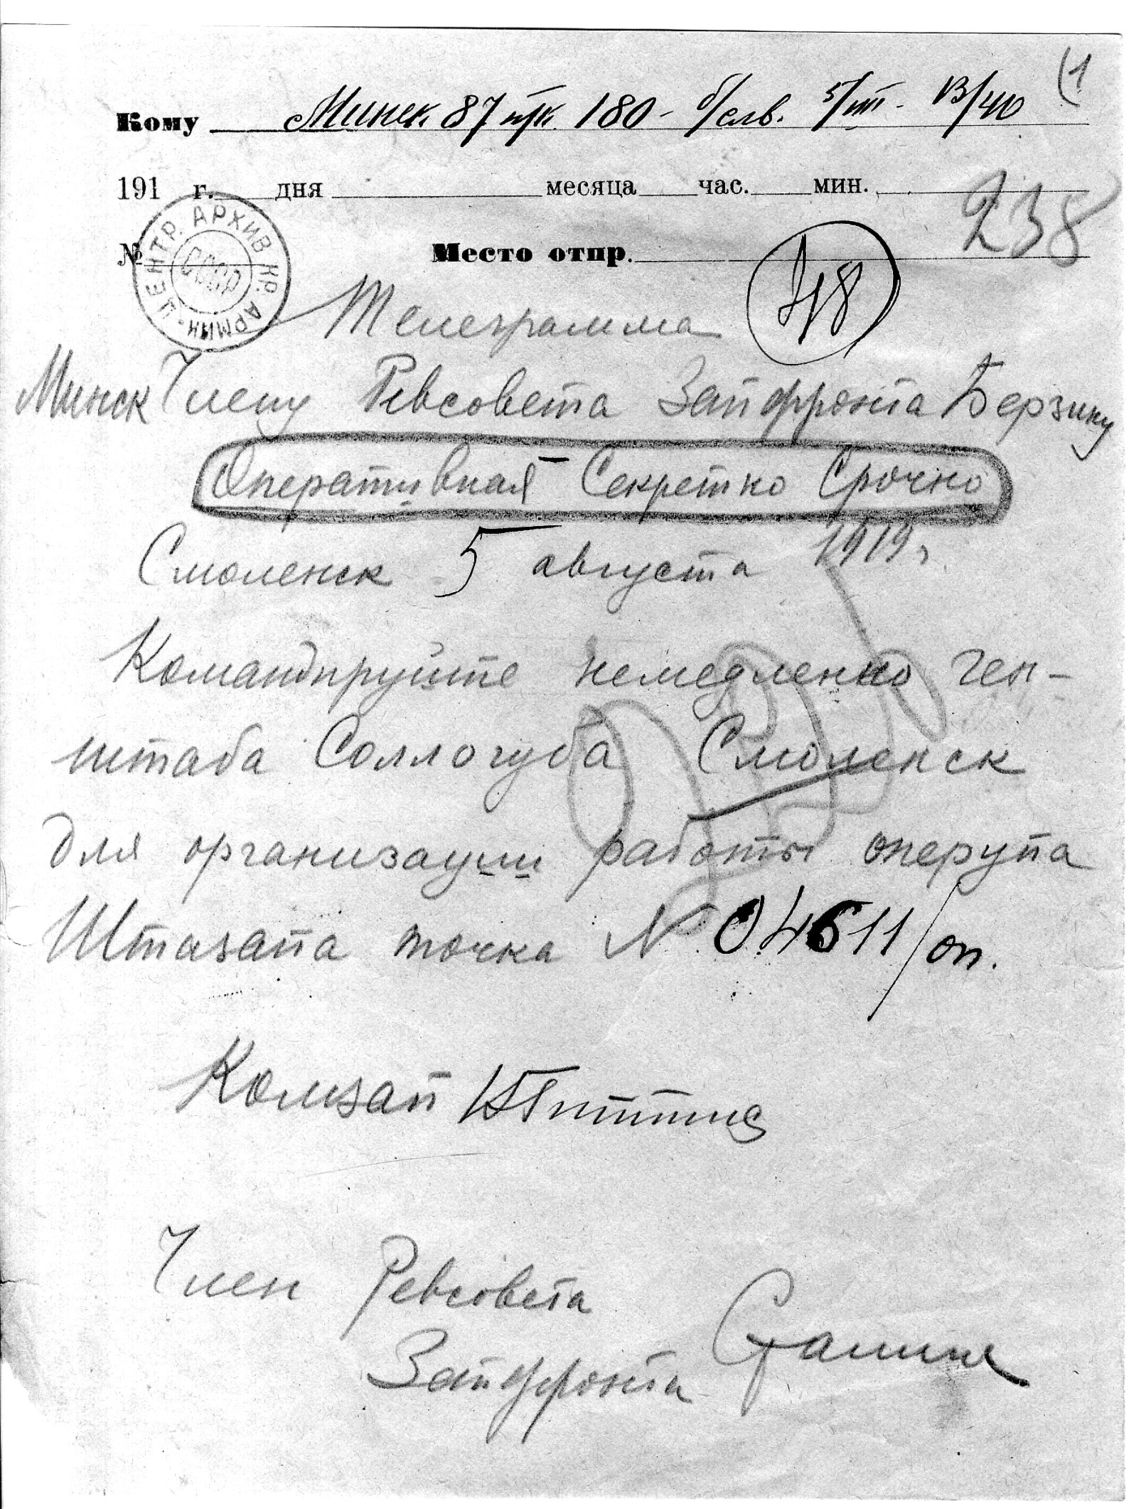 (1
Кому Минск 87 180 - 5/
191 г. дня месяца час. мин.
238
№ Место отпр.
ЦЕНТР. АРХИВ КР. АРМИИ
СССР
48
Телеграмма
Минск Члену Ревсовета Запфронта Берзину
Оперативная Секретно Срочно
Смоленск 5 августа 1919 г.
Командируйте немедленно ген-
штаба Соллогуба Смоленск
для организации работы оперупа
Штазапа точка № 04611/оп.
Комзап Гиттис
Член Ревсовета
Запфронта Сталин